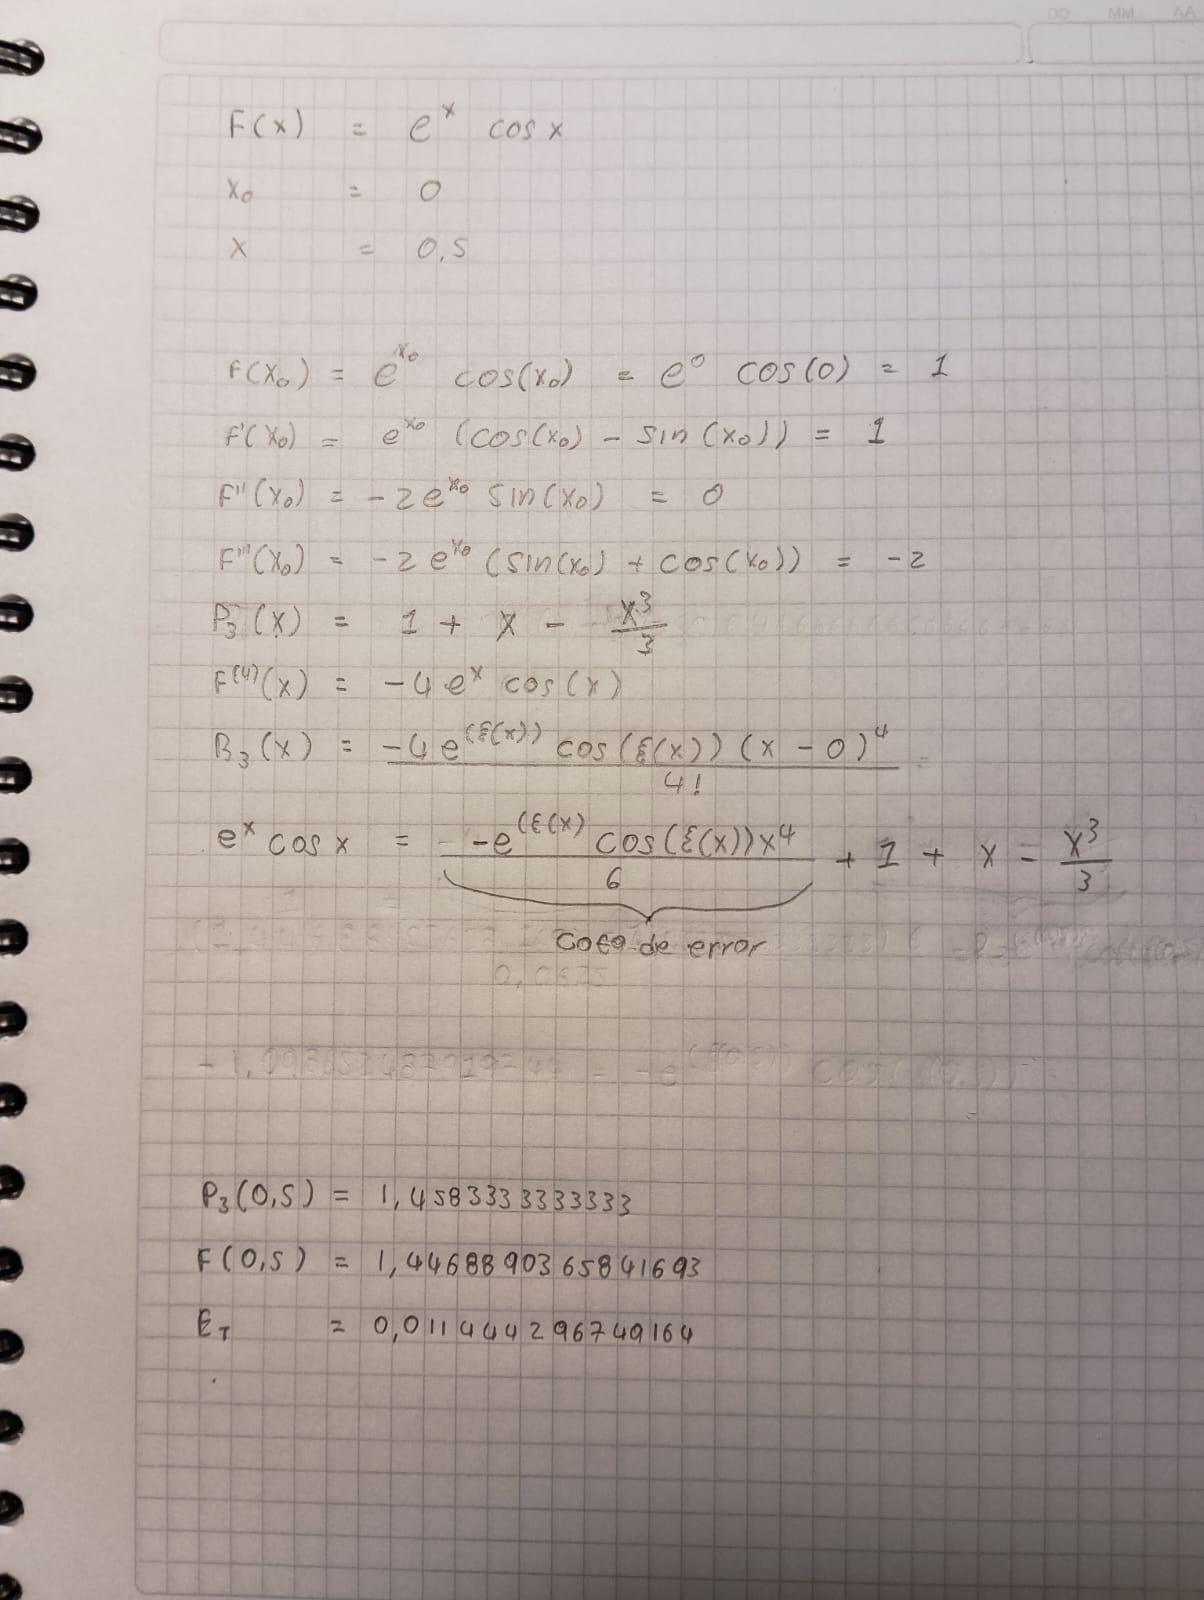 DD MM AA
F(x) = e^x cos x
x₀ = 0
x = 0,5
F(x₀) = e^x₀ cos(x₀) = e^0 cos(0) = 1
F'(x₀) = e^x₀ (cos(x₀) - sin(x₀)) = 1
F''(x₀) = -2e^x₀ sin(x₀) = 0
F'''(x₀) = -2e^x₀ (sin(x₀) + cos(x₀)) = -2
P₃(x) = 1 + x - x³/3
F⁽⁴⁾(x) = -4e^x cos(x)
R₃(x) = -4e^(ξ(x)) cos(ξ(x)) (x - 0)⁴ / 4! =
e^x cos x = -e^(ξ(x) cos(ξ(x)) x⁴ / 6 + 1 + x - x³/3
cota de error
0,0625
P₃(0,5) = 1,4583333333333
F(0,5) = 1,4468890365841693
E_T = 0,011444296749164